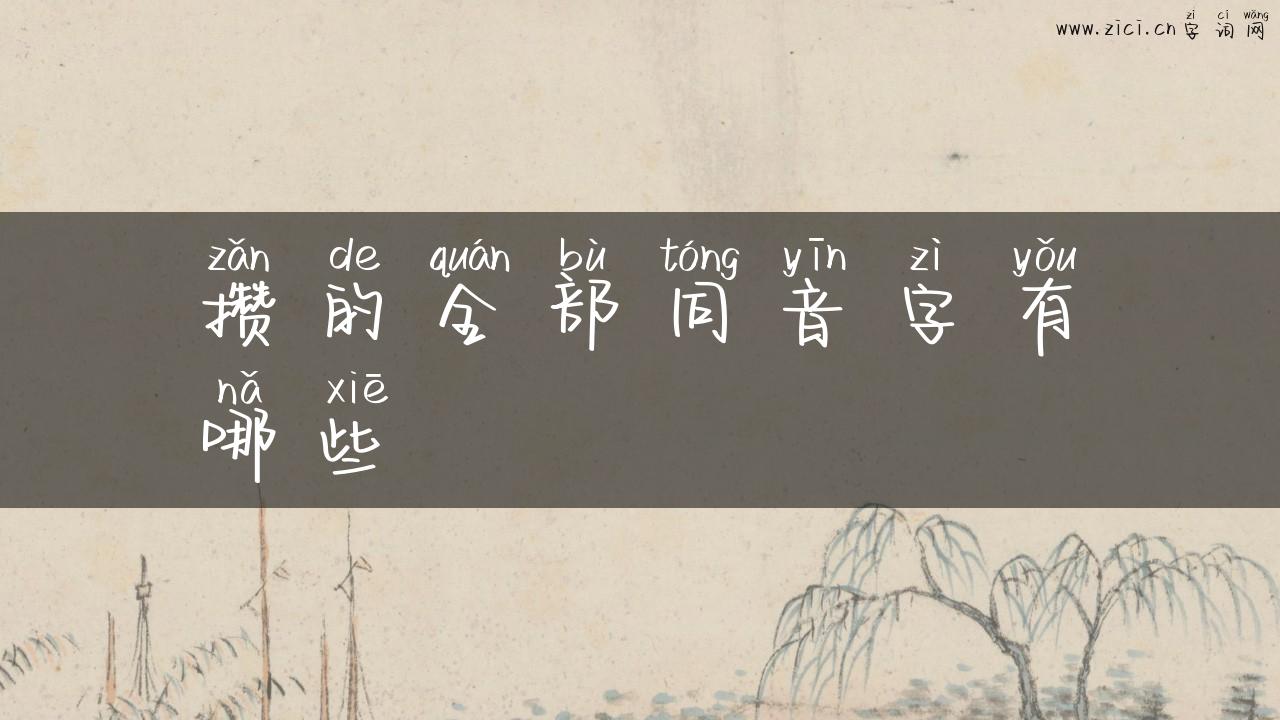 zì cí wǎng
www.zici.cn 字 词 网
zǎn de quán bù tóng yīn zì yǒu
攒 的 全 部 同 音 字 有
nǎ xiē
哪 些